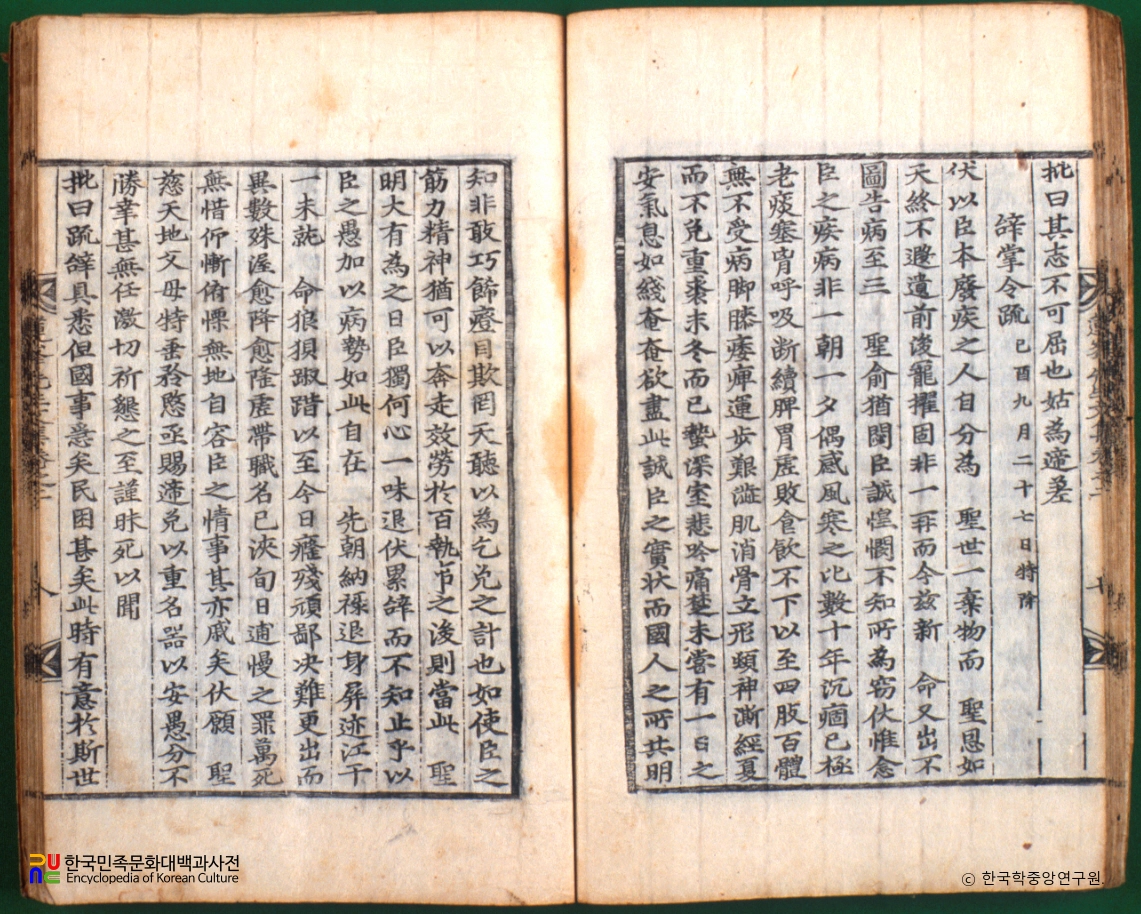 批曰其志不可屈也姑為遞差
辭掌令疏 己酉九月二十七日特除
伏以臣本廢疾之人自分為 聖世一棄物而 聖恩如
天終不遐遺前後寵擢固非一再而今玆新 命又出不
圖告病至三 聖俞猶閟臣誠惶憫不知所為竊伏惟念
臣之疾病非一朝一夕偶感風寒之比數十年沉痼已極
老痰塞胷呼吸断續脾胃虛敗食飮不下以至四肢百體
無不受病脚膝痿痺運步艱澁肌消骨立形顇神澌經夏
而不免重裘未冬而已蟄深室悲吟痛楚未嘗有一日之
安氣息如綫奄奄欲盡此誠臣之實狀而國人之所共明
知非敢巧飾癈目欺罔天聽以為乞免之計也如使臣之
筋力精神猶可以奔走效勞於百執事之後則當此 聖
明大有為之日臣獨何心一味退伏累辭而不知止乎以
臣之愚加以病勢如此自在 先朝納祿退身屛迹江干
一未就 命狼狽踧踖以至今日癃殘頑鄙决難更出而
異數殊渥愈降愈隆虛帶職名已浹旬日逋慢之罪萬死
無惜仰慚俯慄無地自容臣之情事其亦戚矣伏願 聖
慈天地父母特垂矜愍亟賜遞免以重名器以安愚分不
勝幸甚無任激切祈懇之至謹昧死以聞
批曰疏辭具悉但國事急矣民困甚矣此時有意於斯世
한국민족문화대백과사전
Encyclopedia of Korean Culture
ⓒ 한국학중앙연구원.